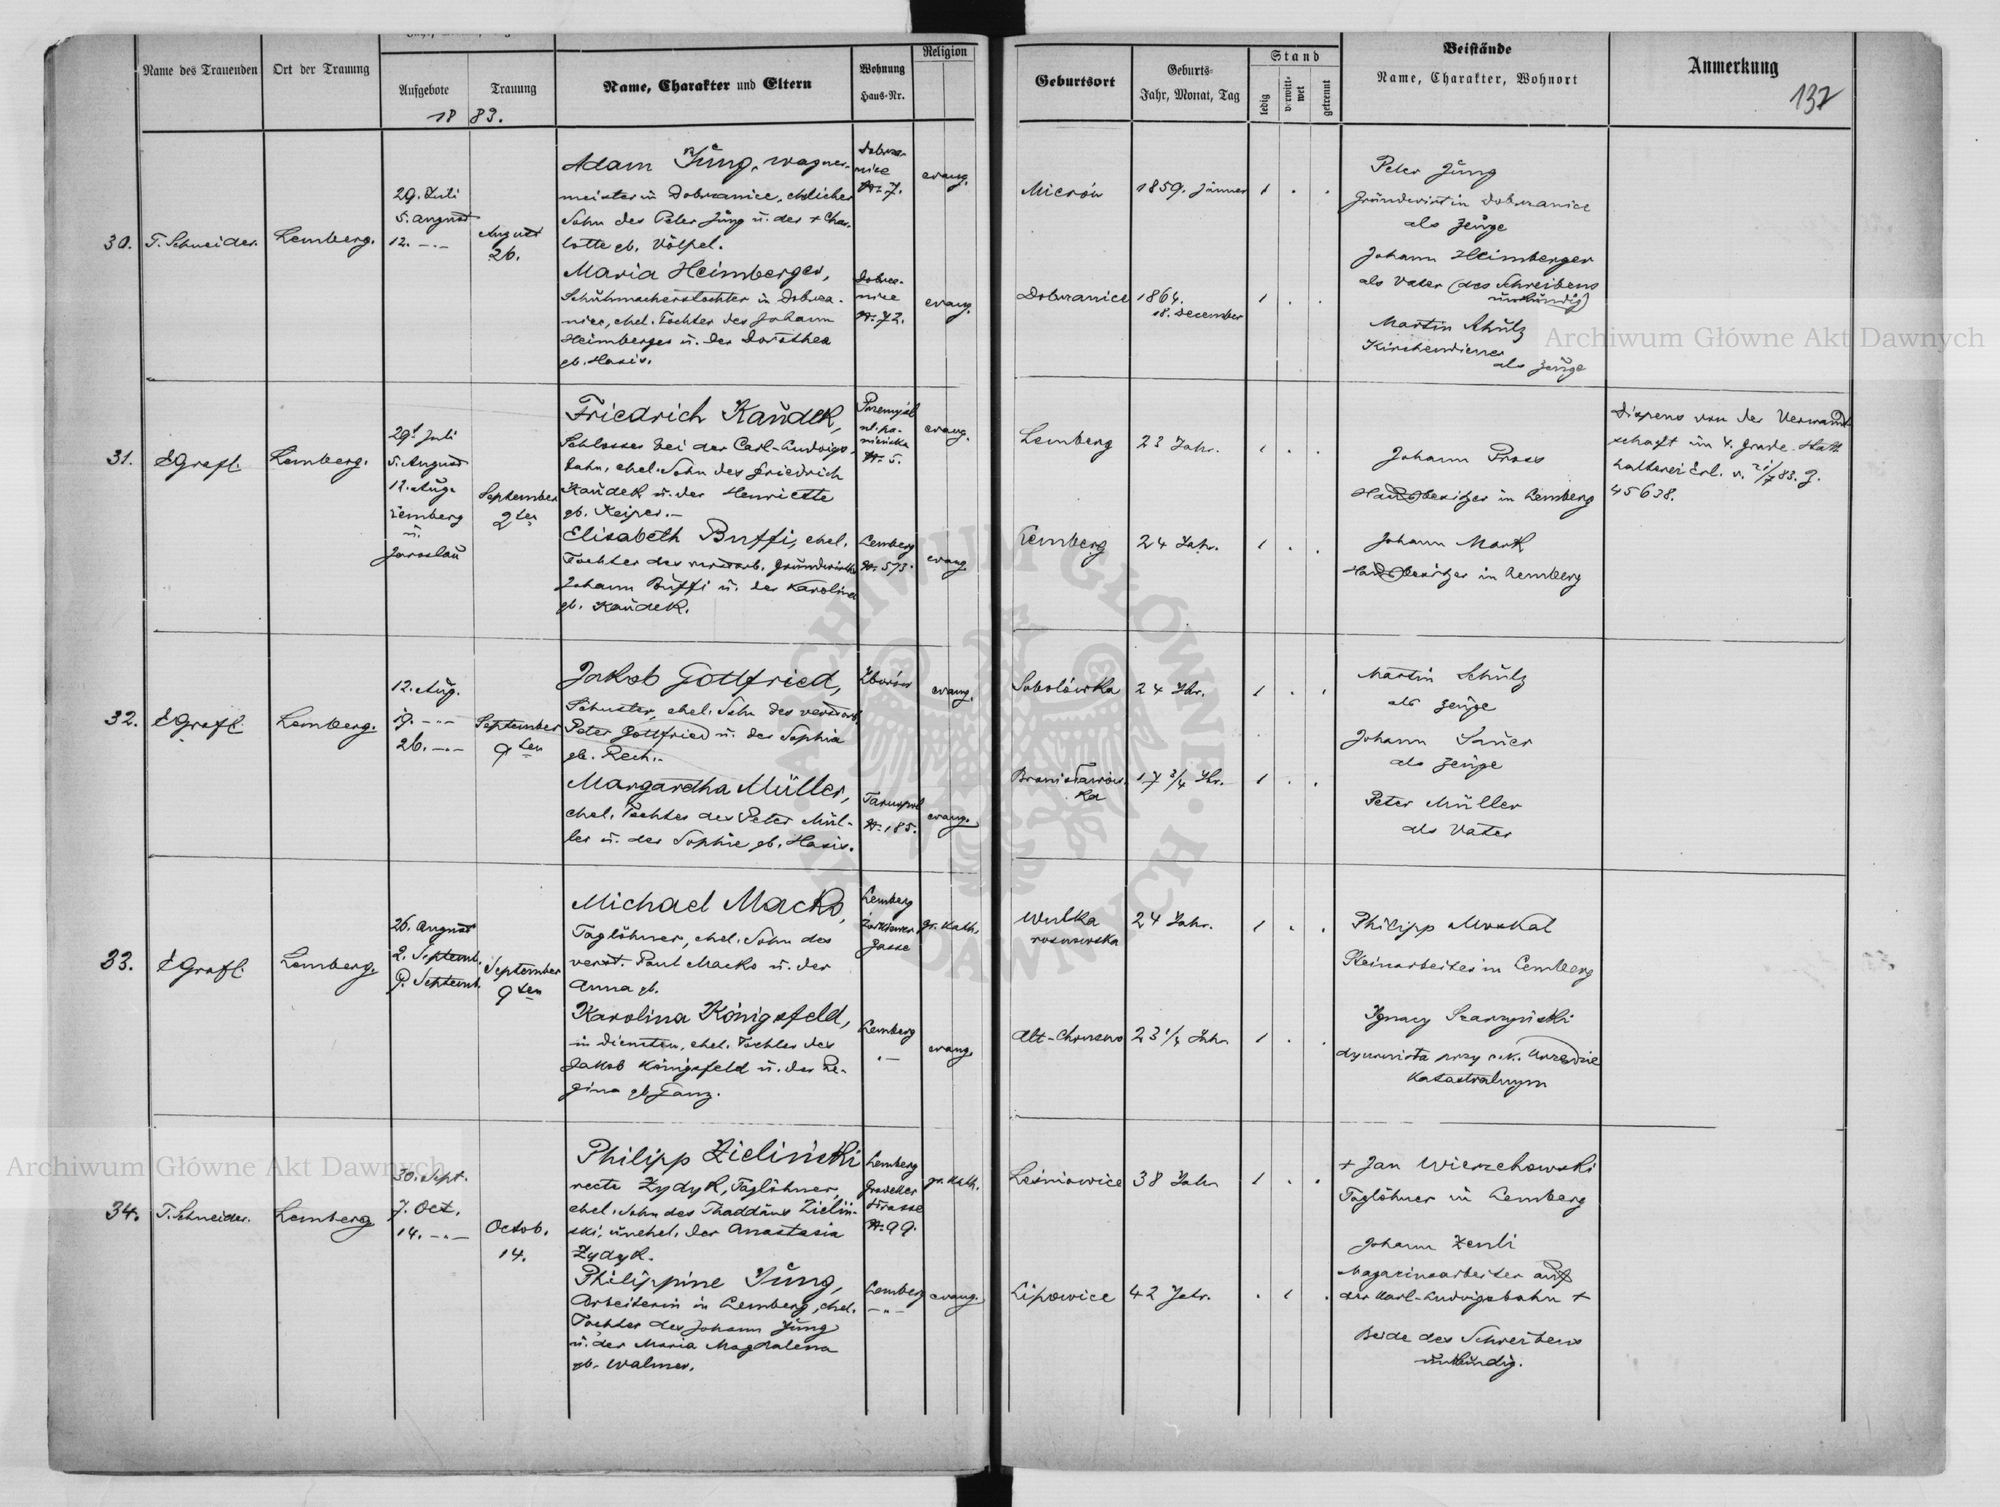 Name des Trauenden
Ort der Trauung
Aufgebote
Trauung
1883.
Name, Charakter und Eltern
Wohnung
Haus-Nr.
Religion
Geburtsort
Geburts-
Jahr, Monat, Tag
Stand
ledig
verwitt-
wet
getrennt
Beistände
Name, Charakter, Wohnort
Anmerkung
137
30.
T. Schneider.
Lemberg.
29. Juli
5. August
12. -"-
August
26.
Adam Jŭng, Wagner-
meister in Dobrzanice, ehelicher
Sohn des Peter Jŭng u. der + Char-
lotte gb. Völpel.
Dobrza-
nice
Nr. 7.
evang.
Mierów
1859. Jänner
1 . .
Peter Jŭng
Grŭndwirt in Dobrzanice
als Zeŭge
Maria Heimberger,
Schŭhmacherstochter in Dobrza-
nice, ehel. Tochter des Johann
Heimberger u. der Dorothea
gb. Hasis.
Dobrza-
nice
Nr. 72.
evang.
Dobrzanice
1864.
18. December
1 . .
Johann Heimberger
als Vater (des Schreibens
ŭnkŭndig)
Martin Schŭtz
Kirchendiener
als Zeŭge
31.
EGrafl.
Lemberg.
29. Juli
5. August
12. Aŭg.
Lemberg
u.
Jaroslaŭ
September
2ten
Friedrich Kaŭdek,
Schlosser bei der Carl-Ludwigs-
bahn, ehel. Sohn des Friedrich
Kaŭdek u. der Henriette
gb. Keiper.-
Przemyśl
ul. pa-
nieńska
Nr. 5.
evang.
Lemberg
23 Jahr.
1 . .
Johann Pross
Haŭsbesitzer in Lemberg
Dispens von der Verwandt
schaft im 4. Grade. Statt
halterei Erl. v. 21/7 83. Z.
45638.
Elisabeth Buffi, ehel.
Tochter des verstorb. Grŭndwirths
Johann Bŭffi u. der Karolina
gb. Kaŭdek.
Lemberg
Nr. 573.
evang.
Lemberg
24 Jahr.
1 . .
Johann Mark
Haŭsbesitzer in Lemberg
32.
EGrafl.
Lemberg.
12. Aŭg.
19. -"-
26. -"-
September
9ten
Jakob Gottfried,
Schuster, ehel. Sohn des verstorb.
Peter Gottfried u. der Sophia
gb. Rech.-
Zborów
evang.
Sobolówka
24 Jhr.
1 . .
Martin Schŭtz
als Zeŭge
Johann Saŭer
als Zeŭge
Margaretha Müller,
ehel. Tochter des Peter Mül-
ler u. der Sophie gb. Hasis.
Tarnopol
Nr. 185.
evang.
Bronisławów-
ka
17 3/4 Jhr.
1 . .
Peter Müller
als Vater
33.
EGrafl.
Lemberg.
26. August
2. Septemb.
9. Septemb.
September
9ten
Michael Macko,
Taglöhner, ehel. Sohn des
verst. Paul Macko u. der
Anna gb.
Lemberg
Gasse
gr. kath.
Wulka
rosnowska
24 Jahr.
1 . .
Philipp Moskal
Steinarbeiter in Lemberg
Karolina Königsfeld,
in Diensten, ehel. Tochter des
Jakob Königsfeld u. der Re-
gina gb. Ganz.
Lemberg
-"-
evang.
Alt-Chrusno
23 1/4 Jahr
1 . .
Ignacy
dyurnista przy c.k. Urzędzie
Katastralnym
34.
T. Schneider.
Lemberg
30. Sept.
7. Oct.
14. -"-
Octob.
14.
Philipp Zieliński
recte Zydyk, Taglöhner,
ehel. Sohn des Thaddäus Zieliń-
ski, ŭnehel. der Anastasia
Zydyk.
Lemberg
Grodeker
Strasse
Nr. 99.
gr. kath.
Leśniowice
38 Jahr
1 . .
+ Jan Wierzchowski
Taglöhner in Lemberg
Philippine Jŭng,
Arbeiterin in Lemberg, ehel.
Tochter des Johann Jŭng
u. der Maria Magdalena
gb. Walmer.
Lemberg
-"-
evang.
Lipowice
42 Jahr.
. 1 .
Johann Zenli
Magazinsarbeiter auf
der Karl-Ludwigsbahn +
Beide des Schreibens
ŭnkŭndig.
Archiwum Główne Akt Dawnych
Archiwum Główne Akt Dawnych
ARCHIWUM GŁÓWNE AKT DAWNYCH